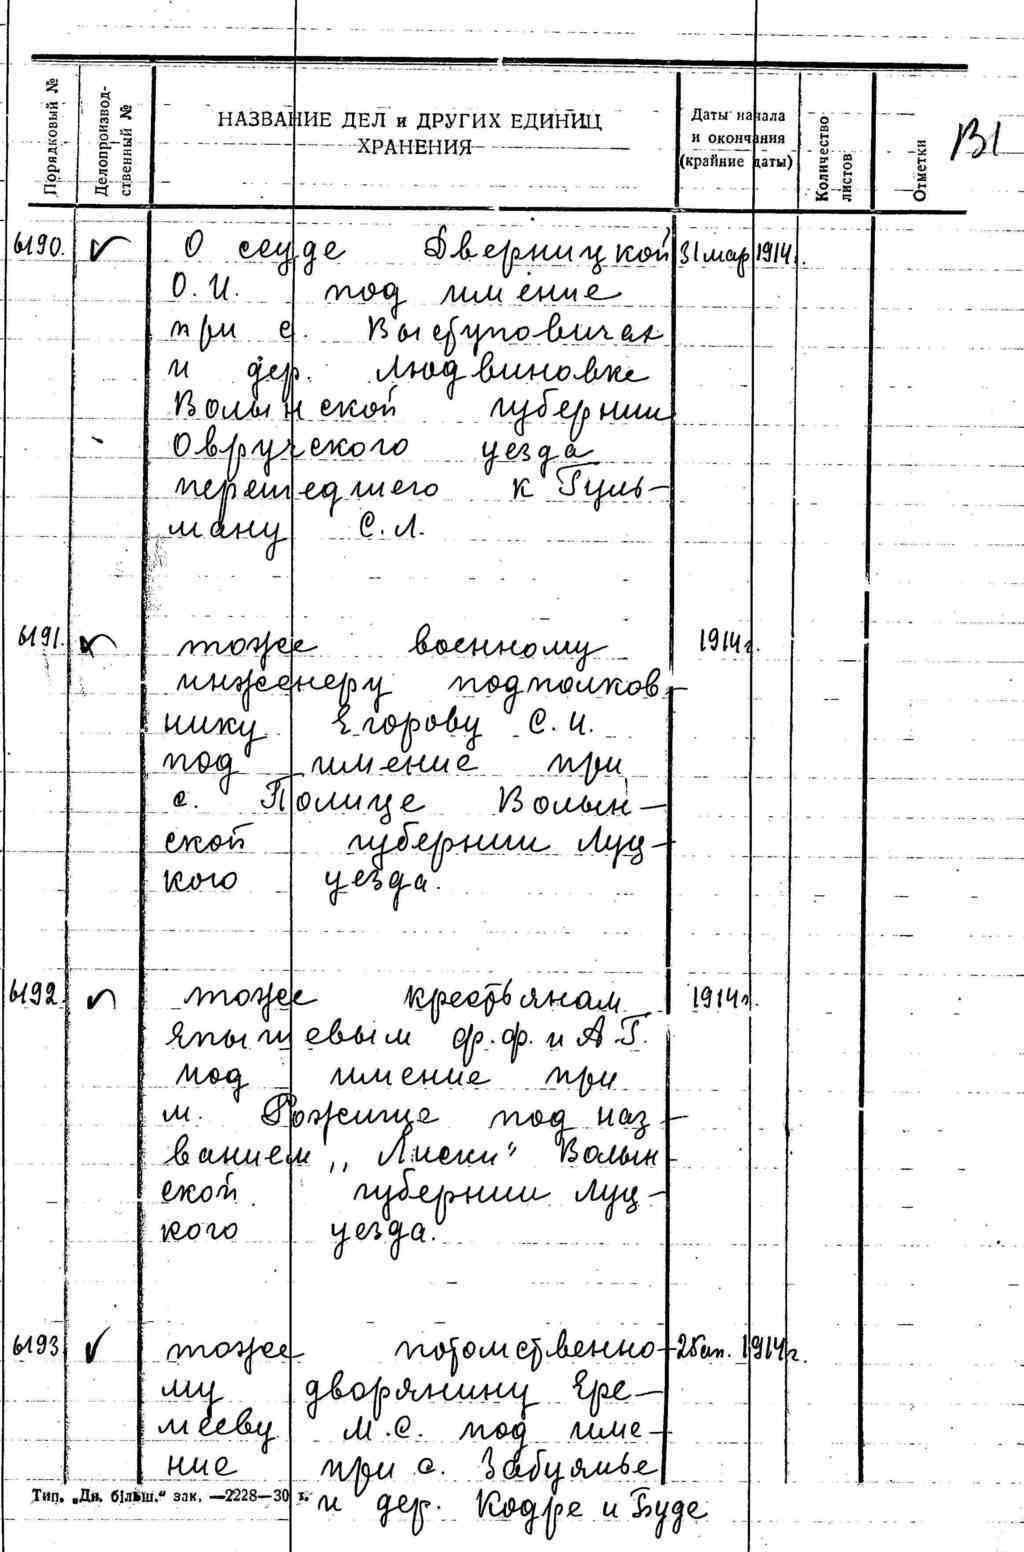 Порядковый №
Делопроизвод-
ственный №
НАЗВАНИЕ ДЕЛ и ДРУГИХ ЕДИНИЦ
ХРАНЕНИЯ
Даты начала
и окончания
(крайние даты)
Количество
листов
Отметки
В1
6190. О ссуде Дверницкой 31 мар 1914г.
О.И. под имение
при с. Выступовичах
и дер. Людвиновке
Волынской губернии
Овручского уезда
перешедшего к Гуль-
ману С.Л.
6191. тоже военному 1914г.
инженеру подполков-
нику Егорову С.И.
под имение при
с. Полице Волын-
ской губернии Луц-
кого уезда.
6192. тоже крестьянам 1914г.
Япынцевым Ф.Ф. и А.Г.
под имение при
м. Рожище под наз-
ванием „Лиски" Волын-
ской губернии Луц-
кого уезда.
6193 тоже потомственно- ап. 1914г.
му дворянину Ере-
мееву М.С. под име-
ние при с. Забуянье
и дер. Кодре и Буде
Тип. „Дн. більш." зак. —2228—30 г.